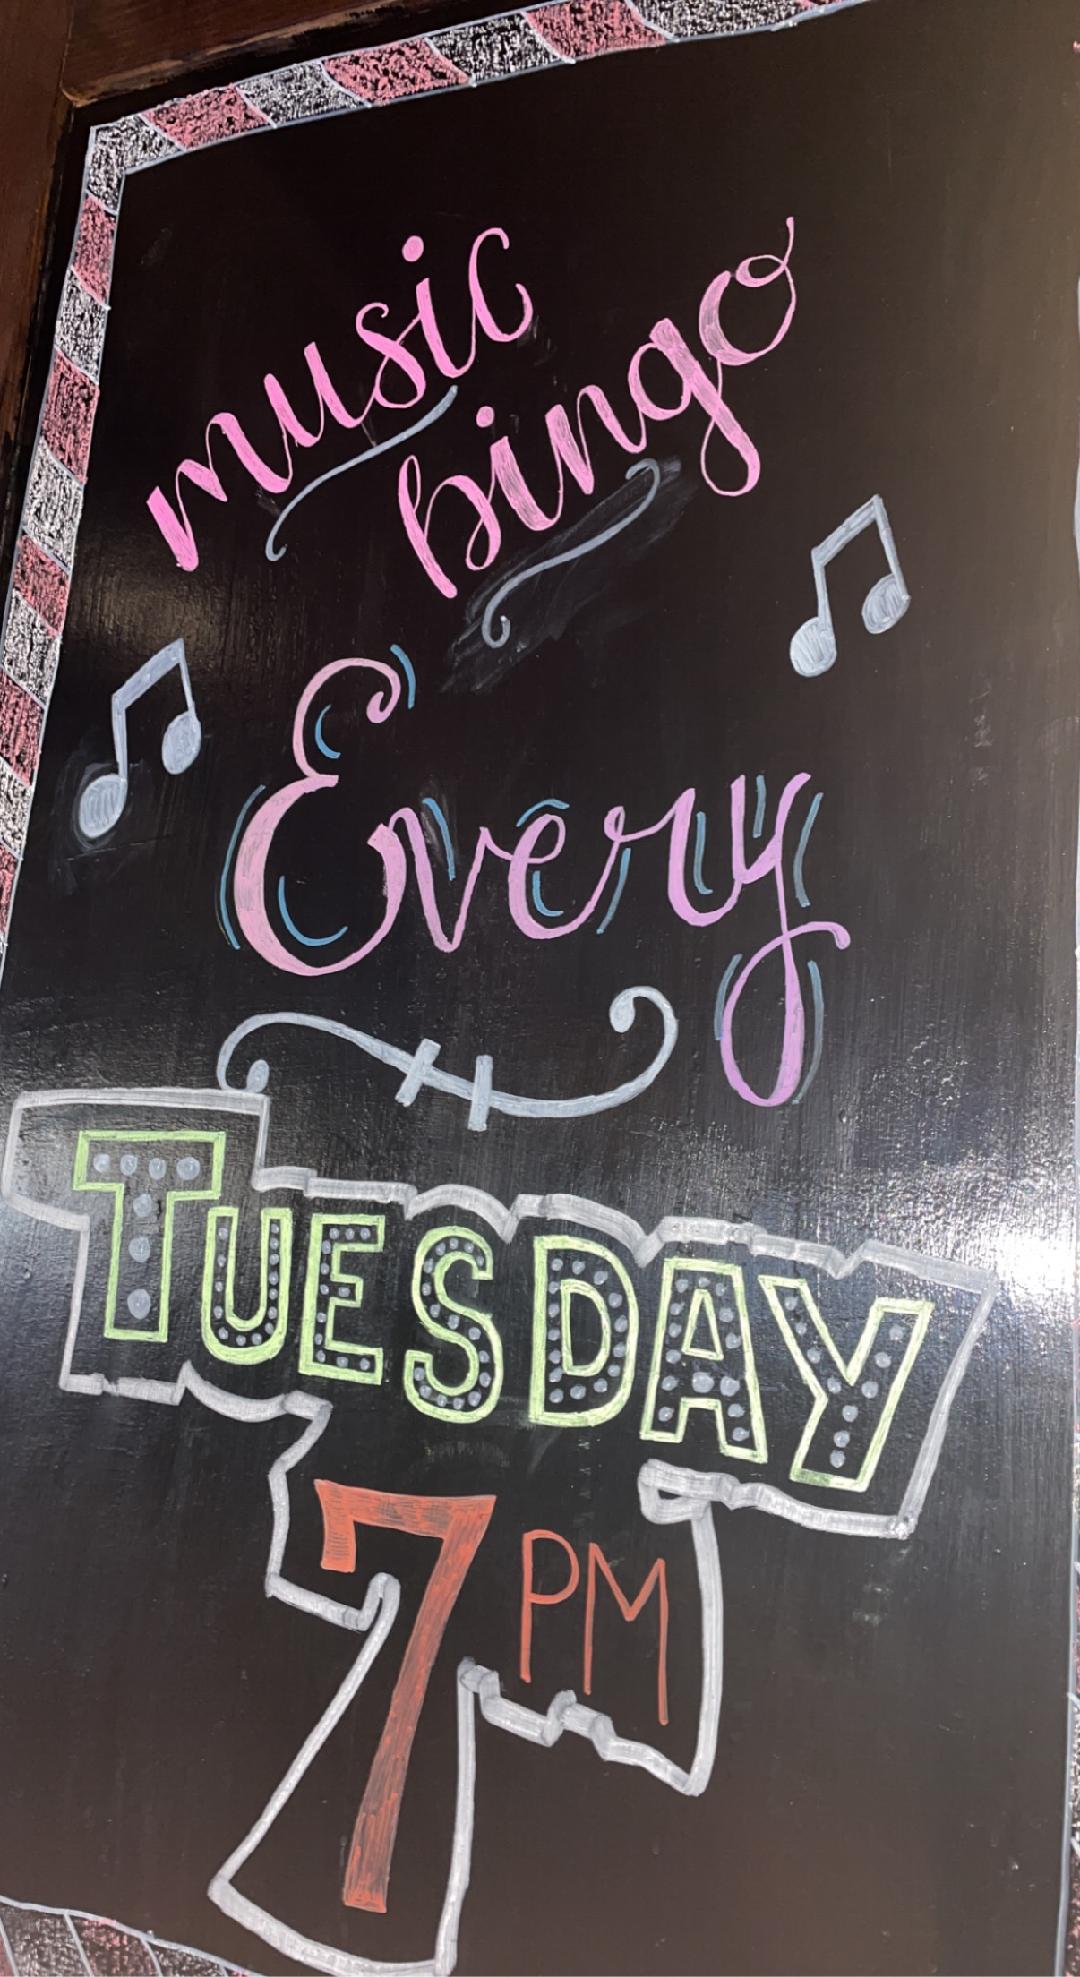 music
bingo
Every
TUESDAY
7 PM